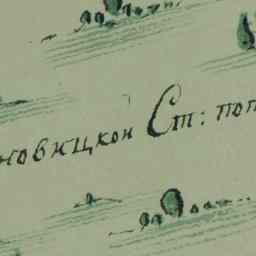 новицкой Ст: поп